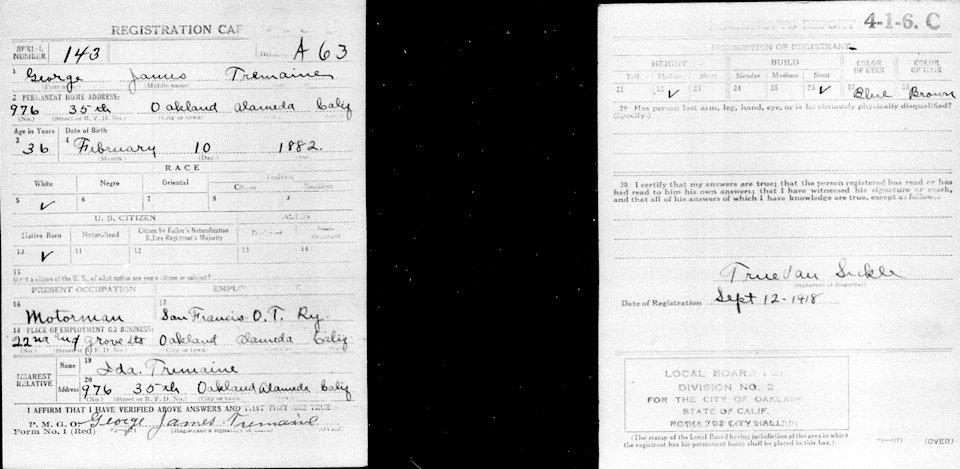 REGISTRATION CAR
SERIAL NUMBER 143 A 63
1 George James Tremaine
(Middle name)
2 PERMANENT HOME ADDRESS:
976 35th Oakland Alameda Calif
(No.) (Street or R. F. D. No.) (City or town)
Age in Years Date of Birth
3 36 4 February 10 1882
(Month) (Day)
RACE
White Negro Oriental Indian
Citizen
5 ✓ 6 7 8 9
U. S. CITIZEN ALIEN
Native Born Naturalized Citizen by Father's Naturalization Before Registrant's Majority
10 ✓ 11 12 13 14
15
If not a citizen of the U. S., of what nation are you a citizen or subject?
PRESENT OCCUPATION EMPLOY
16 Motorman 17 San Francis O. T. Ry.
18 PLACE OF EMPLOYMENT OR BUSINESS:
22nd and Grove sts Oakland Alameda Calif
(No.) (Street or R. F. D. No.) (City or town)
NEAREST RELATIVE Name 19 Ida. Tremaine
Address 20 976 35th Oakland Alameda Calif
(No.) (Street or R. F. D. No.) (City or town)
I AFFIRM THAT I HAVE VERIFIED ABOVE ANSWERS AND THAT THEY ARE TRUE
P. M. G. O. George James Tremaine
Form No. 1 (Red) (Registrant's signature or mark) (OVER)
REGISTRAR'S REPORT 4-1-6. C
DESCRIPTION OF REGISTRANT
HEIGHT BUILD COLOR OF EYES COLOR OF HAIR
Tall Medium Short Slender Medium Stout
21 22 ✓ 23 24 25 26 ✓ 27 Blue 28 Brown
29 Has person lost arm, leg, hand, eye, or is he obviously physically disqualified?
(Specify.)
30 I certify that my answers are true; that the person registered has read or has
had read to him his own answers; that I have witnessed his signature or mark,
and that all of his answers of which I have knowledge are true, except as follows:
True Van Sickle
(Signature of Registrar)
Date of Registration Sept 12-1918
LOCAL BOARD FOR
DIVISION NO. 2
FOR THE CITY OF OAKLAND
STATE OF CALIF.
ROOM 702 CITY HALL
(The stamp of the Local Board having jurisdiction of the area in which
the registrant has his permanent home shall be placed in this box.)
(OVER)